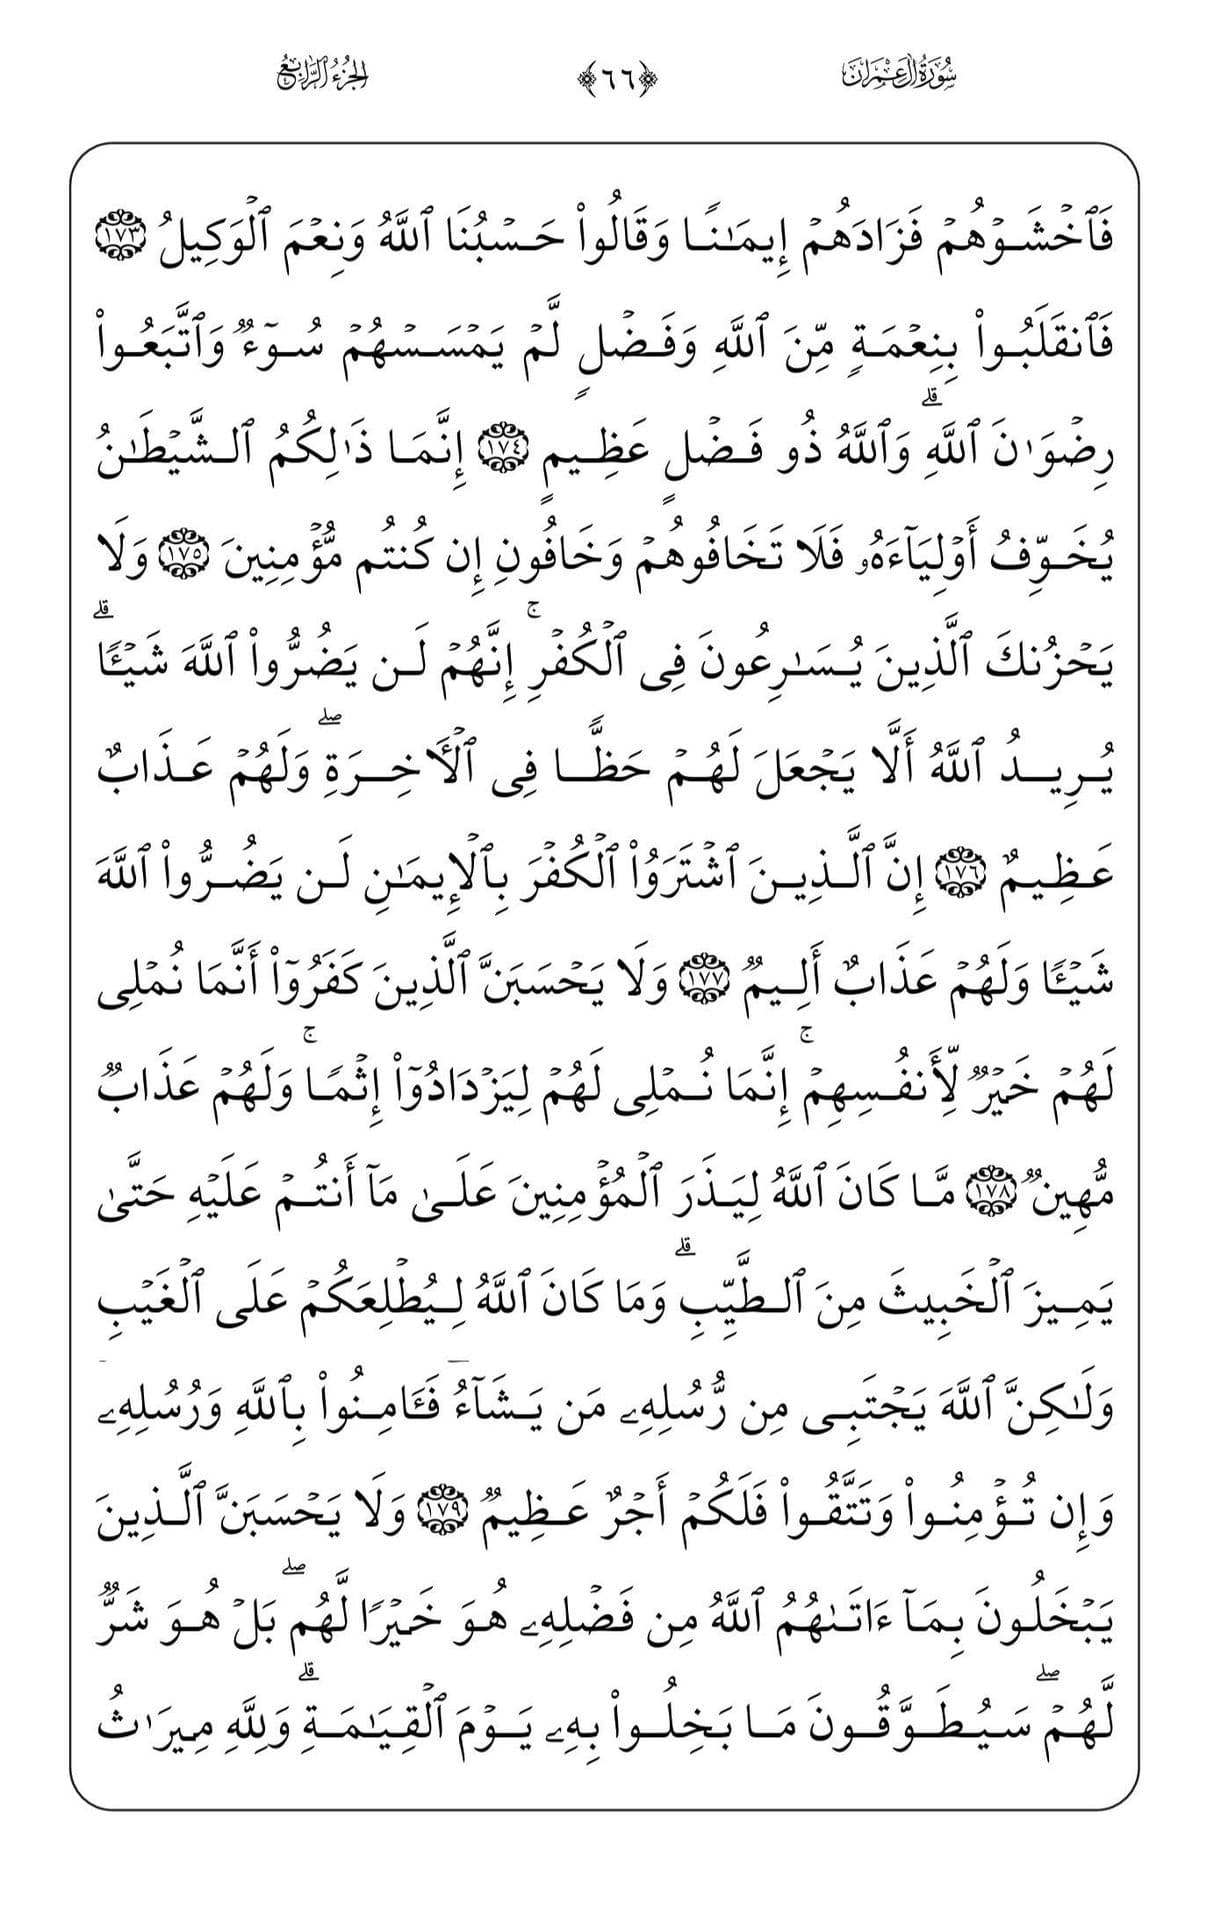 سُورَةُ آلِ عِمْرَان ﴿٦٦﴾ الجُزْءُ الرَّابِعُ
فَٱخۡشَوۡهُمۡ فَزَادَهُمۡ إِيمَٰنٗا وَقَالُواْ حَسۡبُنَا ٱللَّهُ وَنِعۡمَ ٱلۡوَكِيلُ ١٧٣
فَٱنقَلَبُواْ بِنِعۡمَةٖ مِّنَ ٱللَّهِ وَفَضۡلٖ لَّمۡ يَمۡسَسۡهُمۡ سُوٓءٞ وَٱتَّبَعُواْ
رِضۡوَٰنَ ٱللَّهِۗ وَٱللَّهُ ذُو فَضۡلٍ عَظِيمٍ ١٧٤ إِنَّمَا ذَٰلِكُمُ ٱلشَّيۡطَٰنُ
يُخَوِّفُ أَوۡلِيَآءَهُۥ فَلَا تَخَافُوهُمۡ وَخَافُونِ إِن كُنتُم مُّؤۡمِنِينَ ١٧٥ وَلَا
يَحۡزُنكَ ٱلَّذِينَ يُسَٰرِعُونَ فِي ٱلۡكُفۡرِۚ إِنَّهُمۡ لَن يَضُرُّواْ ٱللَّهَ شَيۡـٔٗاۗ
يُرِيدُ ٱللَّهُ أَلَّا يَجۡعَلَ لَهُمۡ حَظّٗا فِي ٱلۡأٓخِرَةِۖ وَلَهُمۡ عَذَابٌ
عَظِيمٌ ١٧٦ إِنَّ ٱلَّذِينَ ٱشۡتَرَوُاْ ٱلۡكُفۡرَ بِٱلۡإِيمَٰنِ لَن يَضُرُّواْ ٱللَّهَ
شَيۡـٔٗا وَلَهُمۡ عَذَابٌ أَلِيمٞ ١٧٧ وَلَا يَحۡسَبَنَّ ٱلَّذِينَ كَفَرُوٓاْ أَنَّمَا نُمۡلِي
لَهُمۡ خَيۡرٞ لِّأَنفُسِهِمۡۚ إِنَّمَا نُمۡلِي لَهُمۡ لِيَزۡدَادُوٓاْ إِثۡمٗاۚ وَلَهُمۡ عَذَابٞ
مُّهِينٞ ١٧٨ مَّا كَانَ ٱللَّهُ لِيَذَرَ ٱلۡمُؤۡمِنِينَ عَلَىٰ مَآ أَنتُمۡ عَلَيۡهِ حَتَّىٰ
يَمِيزَ ٱلۡخَبِيثَ مِنَ ٱلطَّيِّبِۗ وَمَا كَانَ ٱللَّهُ لِيُطۡلِعَكُمۡ عَلَى ٱلۡغَيۡبِ
وَلَٰكِنَّ ٱللَّهَ يَجۡتَبِي مِن رُّسُلِهِۦ مَن يَشَآءُ فَـَٔامِنُواْ بِٱللَّهِ وَرُسُلِهِۦ
وَإِن تُؤۡمِنُواْ وَتَتَّقُواْ فَلَكُمۡ أَجۡرٌ عَظِيمٞ ١٧٩ وَلَا يَحۡسَبَنَّ ٱلَّذِينَ
يَبۡخَلُونَ بِمَآ ءَاتَىٰهُمُ ٱللَّهُ مِن فَضۡلِهِۦ هُوَ خَيۡرٗا لَّهُمۖ بَلۡ هُوَ شَرّٞ
لَّهُمۡۖ سَيُطَوَّقُونَ مَا بَخِلُواْ بِهِۦ يَوۡمَ ٱلۡقِيَٰمَةِۗ وَلِلَّهِ مِيرَٰثُ